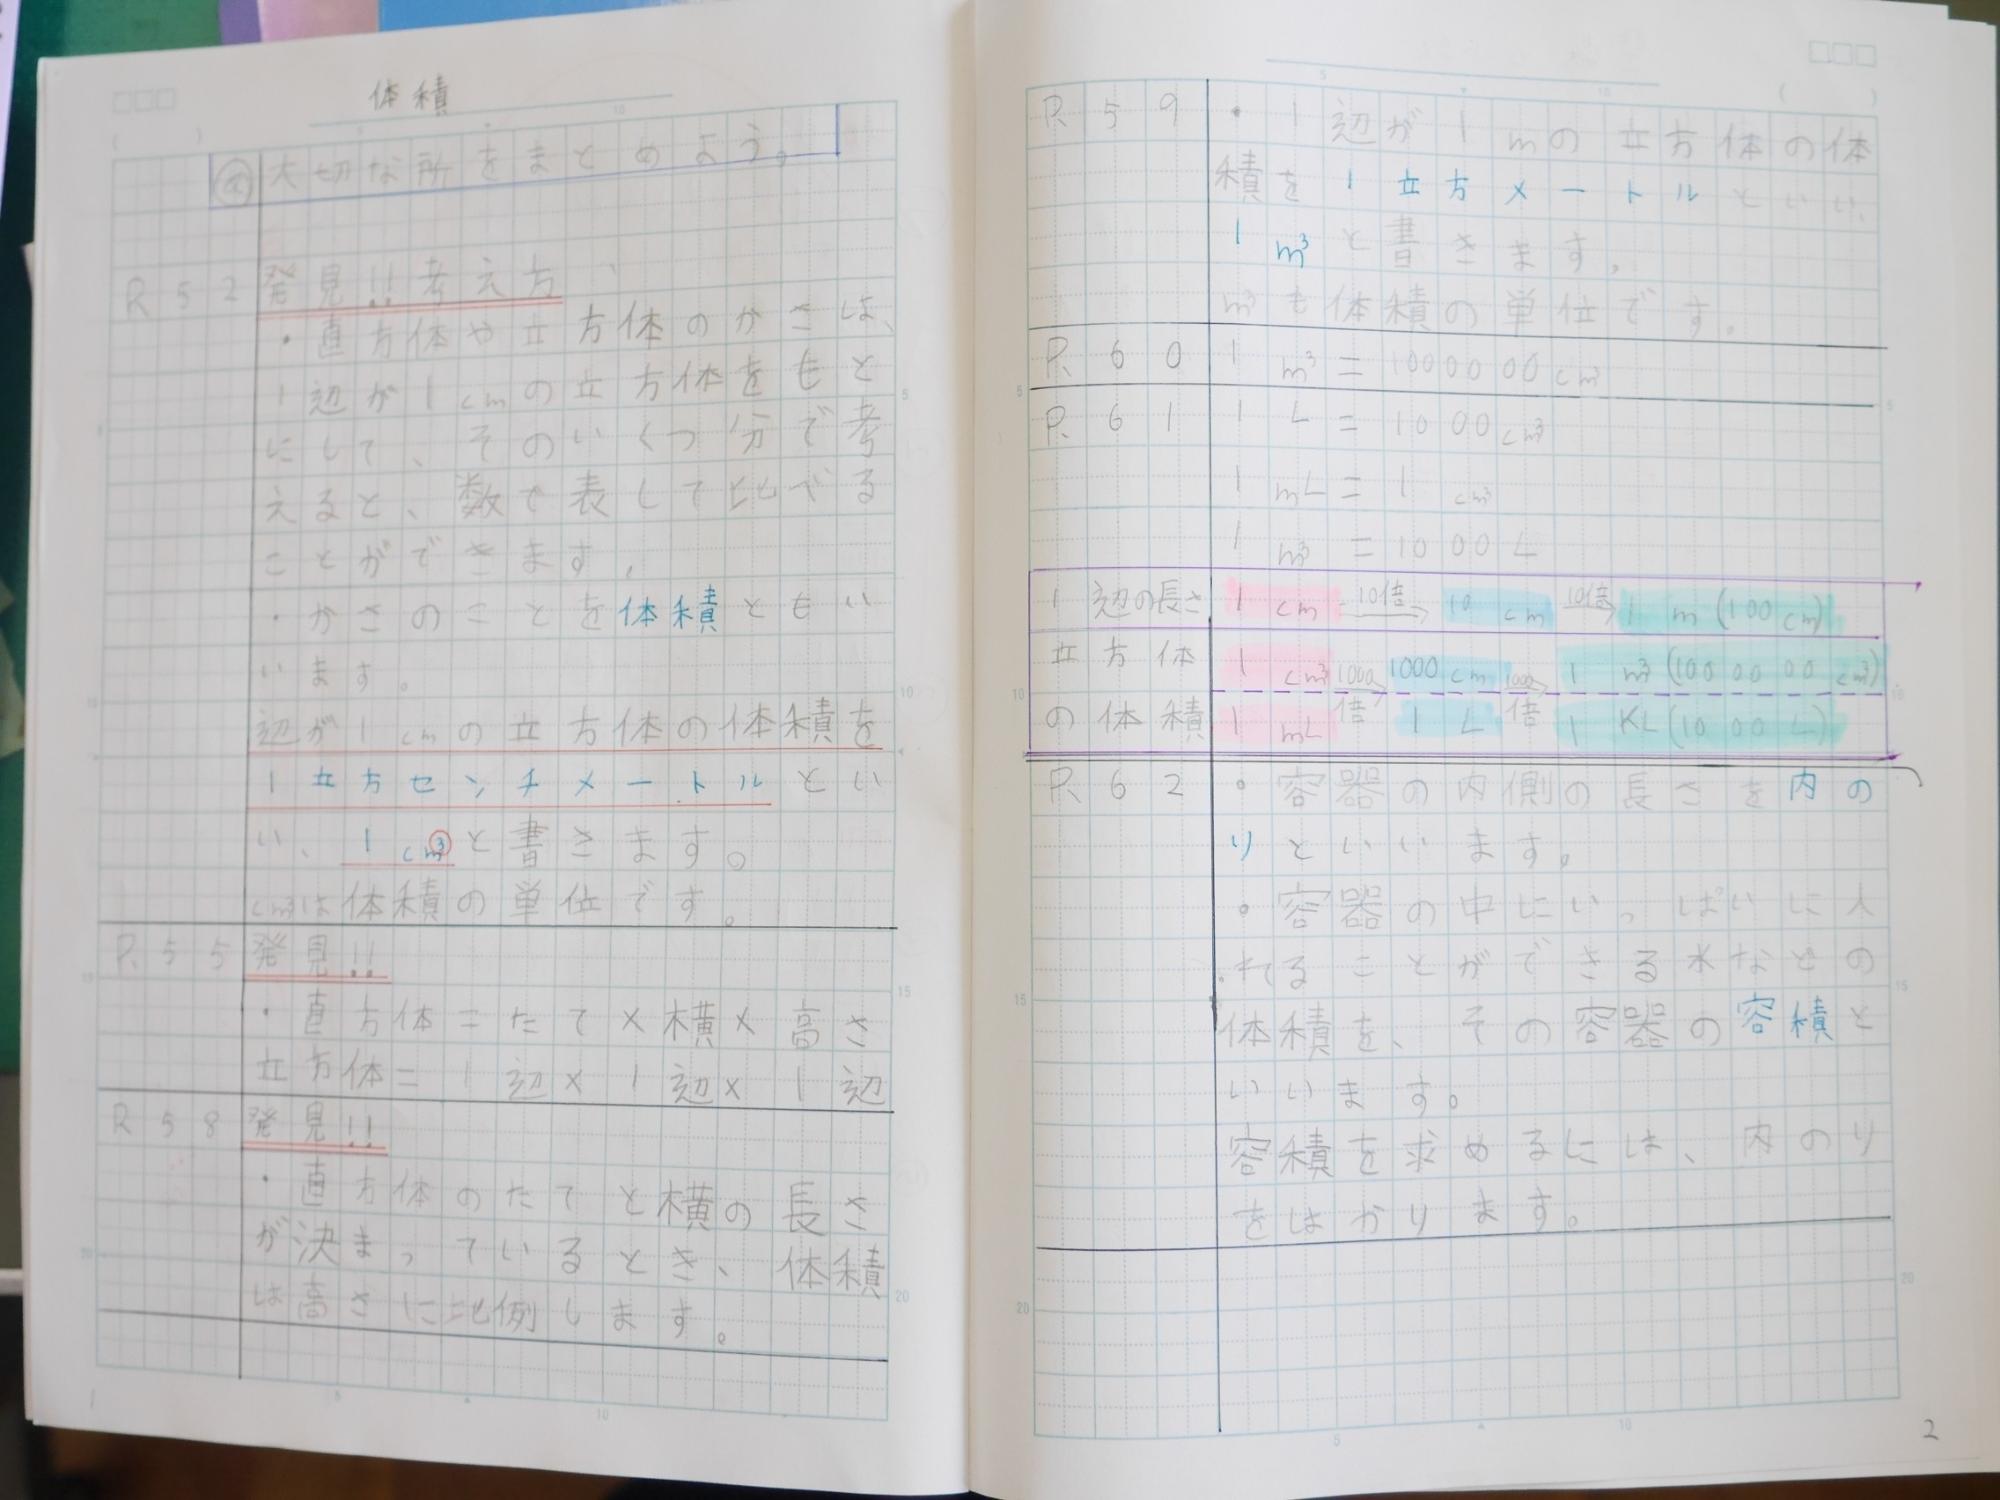 体積
め 大切な所をまとめよう。
P.52 発見!!考え方
・直方体や立方体のかさは、
1辺が1cmの立方体をもと
にして、そのいくつ分で考
えると、数で表して比べる
ことができます。
・かさのことを体積ともい
います。
辺が1cmの立方体の体積を
1立方センチメートルとい
い、1cm³と書きます。
cm³は体積の単位です。
P.55 発見!!
・直方体=たて×横×高さ
立方体=1辺×1辺×1辺
P.58 発見!!
・直方体のたてと横の長さ
が決まっているとき、体積
は高さに比例します。
1
P.59 ・1辺が1mの立方体の体
積を1立方メートルといい、
1m³と書きます。
m³も体積の単位です。
P.60 1m³=1000000cm³
P.61 1L=1000cm³
1mL=1cm³
1m³=1000L
1辺の長さ 1cm 10倍→ 10cm 10倍→ 1m(100cm)
立方体 1cm³ 1000倍→ 1000cm 1000倍→ 1m³(1000000cm³)
の体積 1mL 1L 1KL(1000L)
P.62 ・容器の内側の長さを内の
りといいます。
・容器の中にいっぱいに入
れることができる水などの
体積を、その容器の容積と
いいます。
容積を求めるには、内のり
をはかります。
2